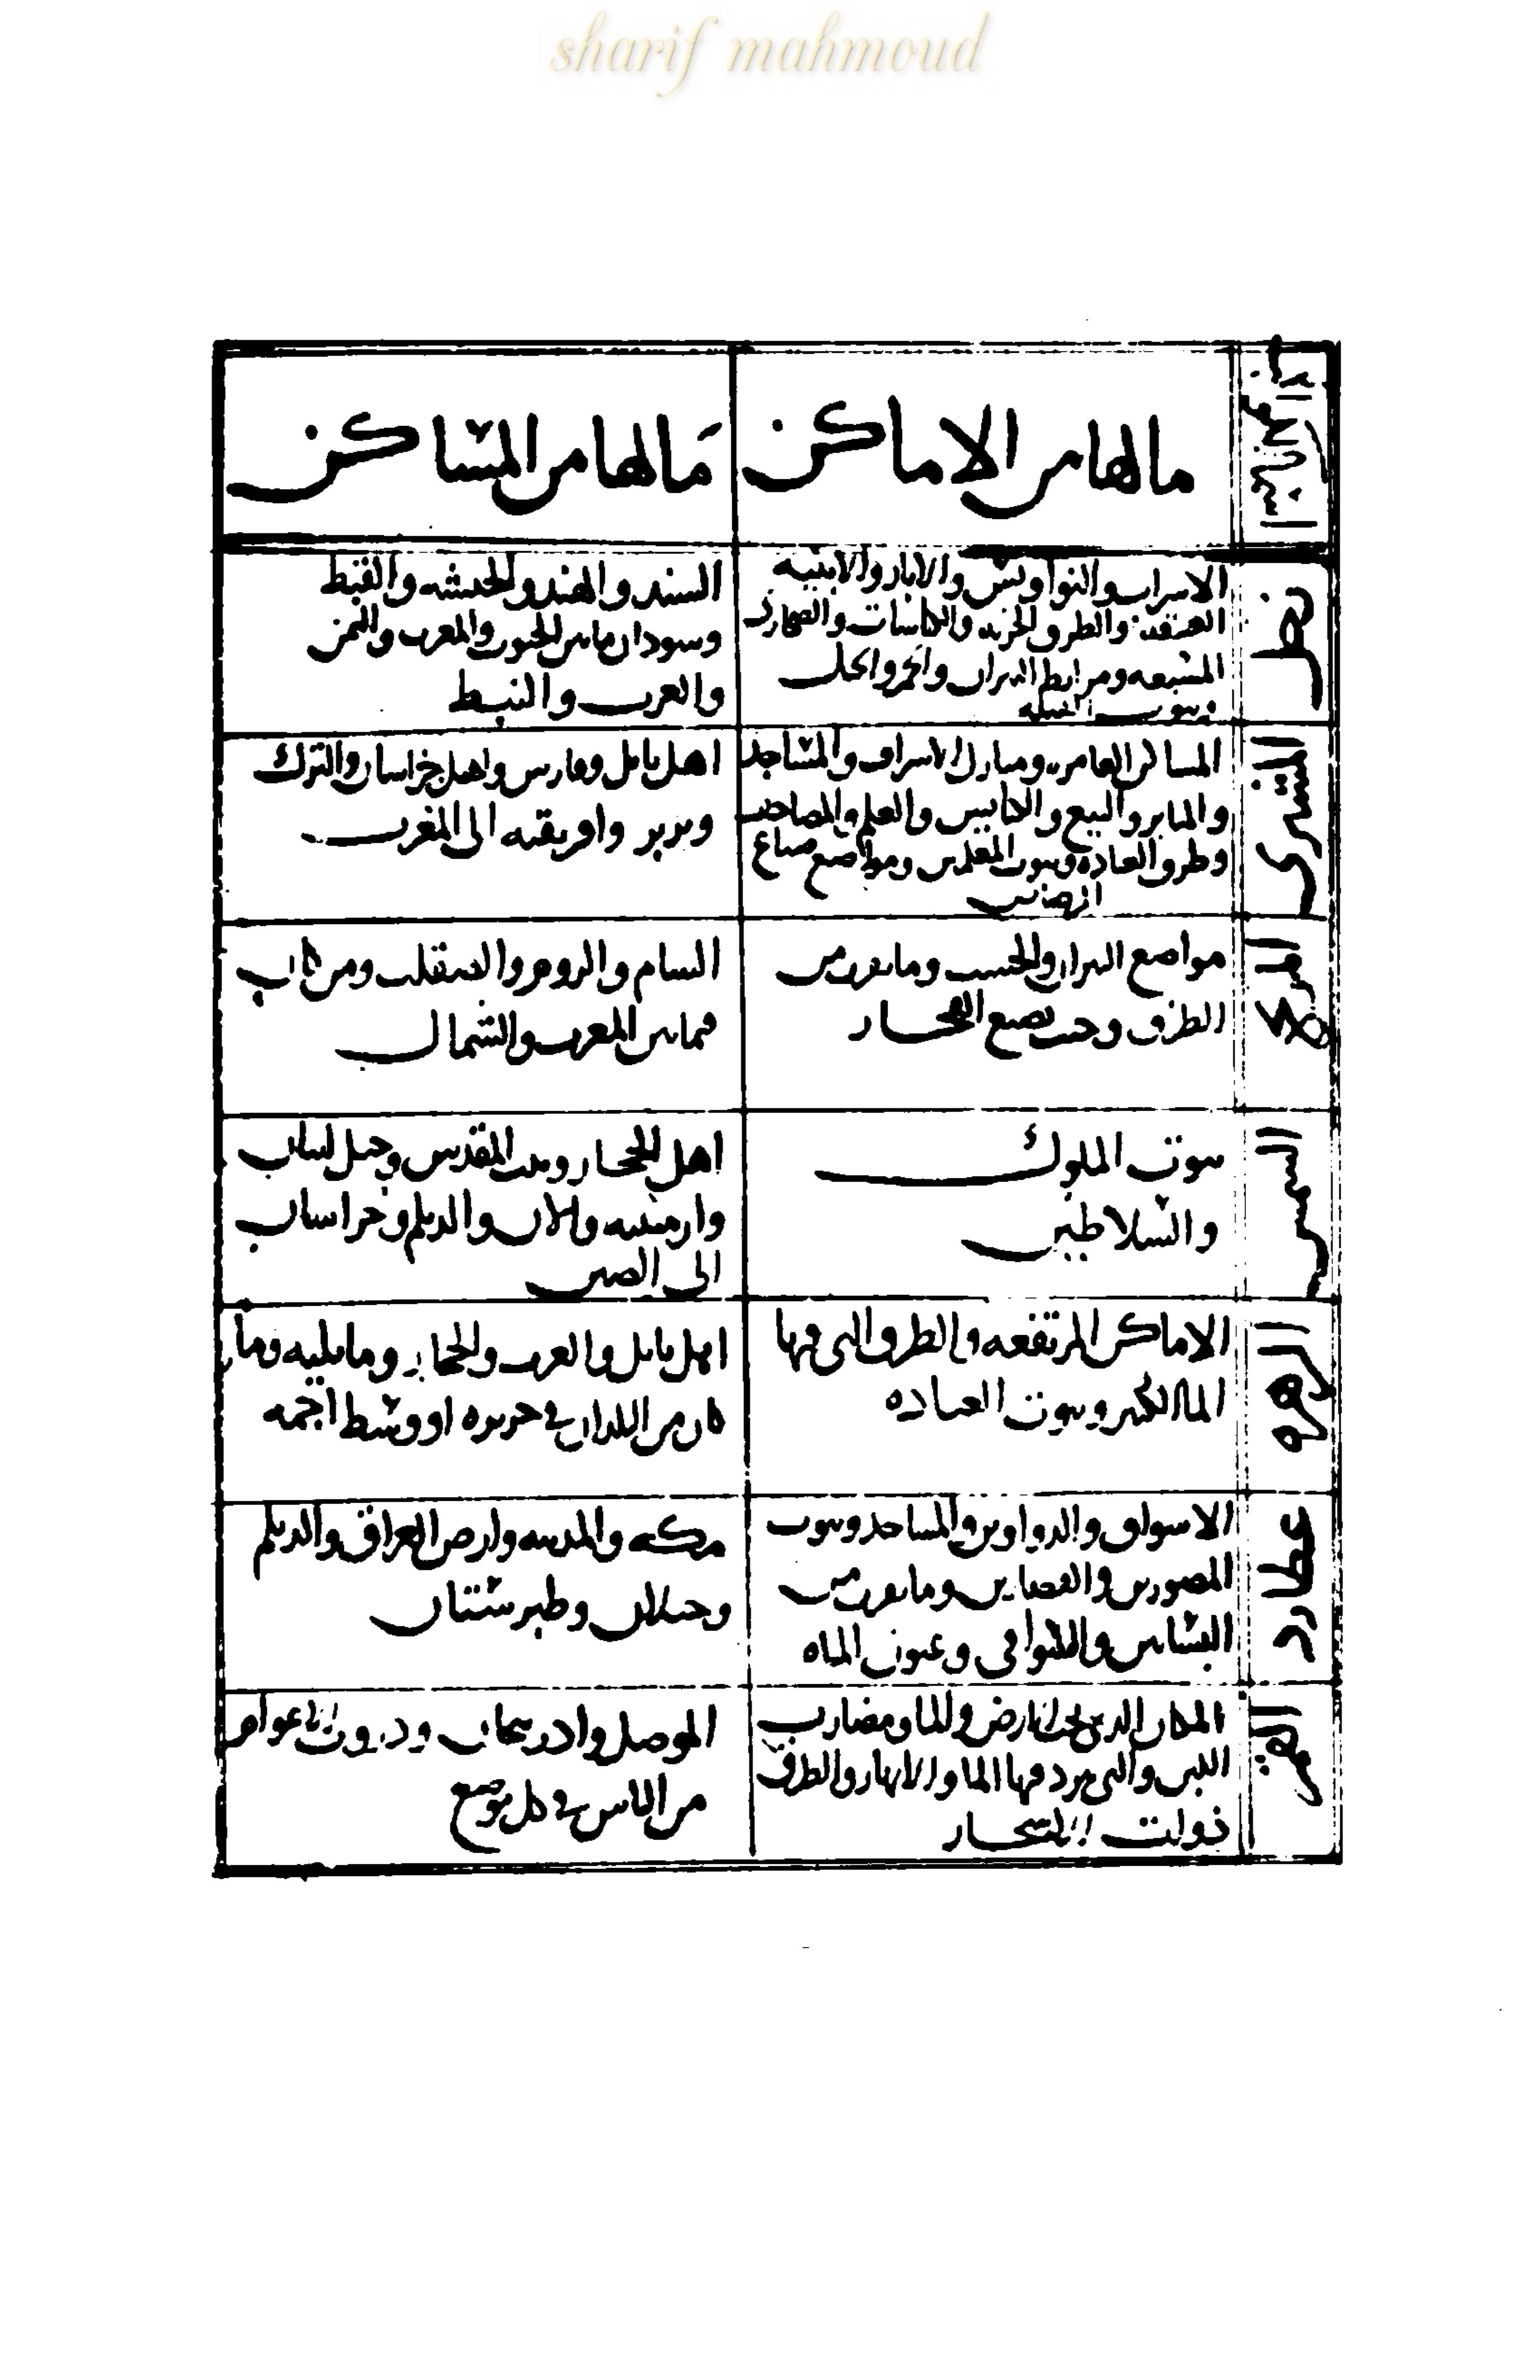 sharif mahmoud
مالها من الاماكن
مالها من المساكن
زحل
الاسراب والنواويس والابار والابنيه
العتيقه والطرق الخربه والكناسات والصحارى
المسبعه ومرابط الثيران والحمر والخيل
السند والهند والحبشه والقبط
وسودان مابين الجنوب والمغرب واليمن
والعرب والنبط
المشترى
المساكن العامره ومنازل الاشراف والمساجد
والمنابر والبيع والكنايس والعلم والمصاحف
وطرق العباده وبيوت المعلمين ومواضع صناع
الرصاص
اهل بابل وفارس واهل خراسان والترك
وبربر وافريقيه الى المغرب
المريخ
مواضع النيران والحسب ومايقرب من
الطرق وحيث يصنع الفخار
الشام والروم والصقلب ومن كان
فيمابين المغرب والشمال
الشمس
بيوت الملوك
والسلاطين
اهل الحجاز وبيت المقدس وجبل لبنان
وارمينيه والان والديلم وخراسان
الى الصين
الزهره
الاماكن المرتفعه والطرق التى فيها
الماالكثير وبيوت العباده
اهل بابل والعرب والحجاز ومايليه وما
كان من البلدان فى جزيره او وسط اجمه
عطارد
الاسواق والدواوين والمساجد وبيوت
المصورين والقصارين ومايقرب من
البساتين والسواقى وعيون الماه
مكه والمدينه وارض العراق والديلم
وجيلان وطبرستان
القمر
المكان الندى تحت الارض والما ومضارب
اللبن والتى يبرد فيها الما والانهار والطرق
ذوات الاشجار
الموصل واذربيجان عوام
من الناس فى كل موضع